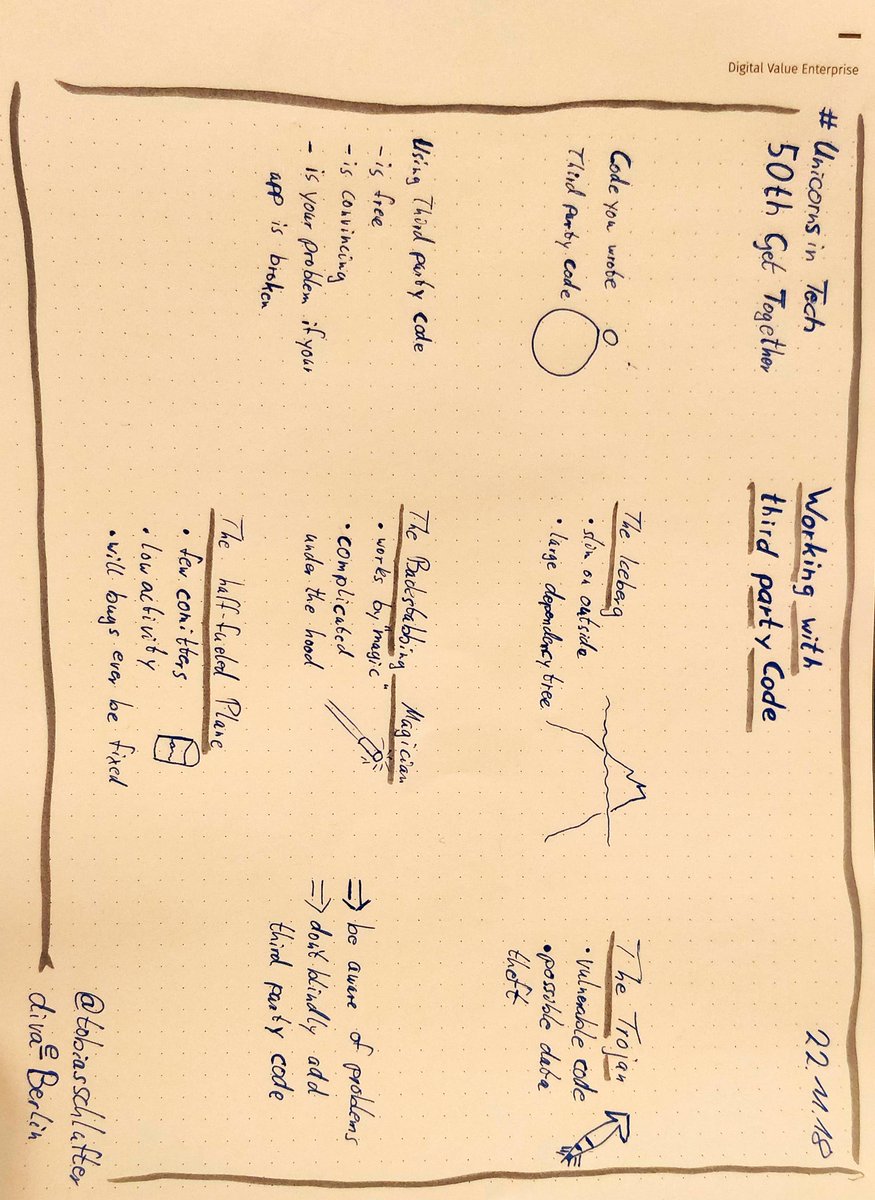 Digital Value Enterprise
# Unicorns in Tech
50th Get Together
Working with
third party Code
22.11.18
Code you wrote
Third party code
Using Third party code
- is free
- is convincing
- is your problem if your
app is broken
The Iceberg
• slim on outside
• large dependency tree
The Backstabbing Magician
• works by "magic"
• complicated
under the hood
The half-fueled Plane
• few comitters
• low activity
• will bugs ever be fixed
The Trojan
• vulnerable code
• possible data
theft
⇒ be aware of problems
⇒ don't blindly add
third party code
@tobiasschlafter
diva-e Berlin